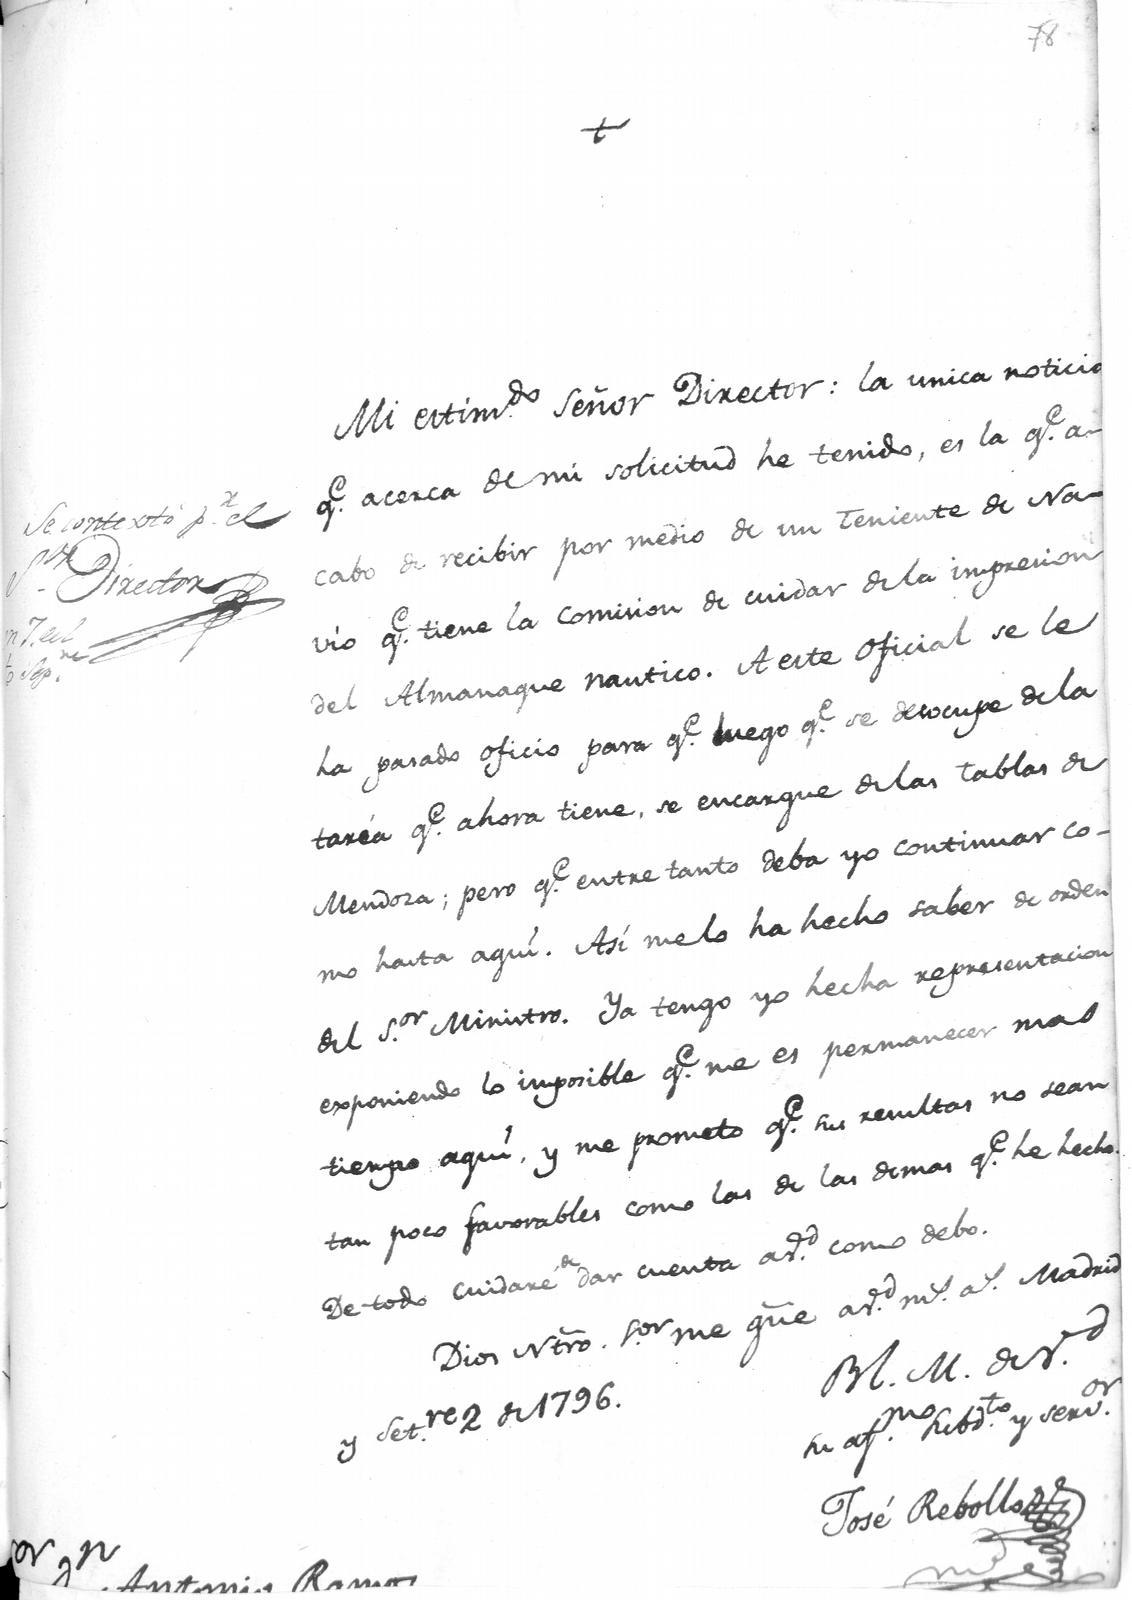 78
+
Mi estim.do Señor Director: la unica noticia
q.e acerca de mi solicitud he tenido, es la q.e a-
cabo de recibir por medio de un Teniente de Na-
vio q.e tiene la comision de cuidar de la impresion
del Almanaque nautico. A este oficial se le
ha pasado oficio para q.e luego q.e se desocupe de la
taréa q.e ahora tiene, se encargue de las tablas de
Mendoza; pero q.e entre tanto deba yo continuar co-
mo hasta aquí. Así me lo ha hecho saber de orden
del S.or Ministro. Ya tengo yo hecha representacion
exponiendo lo imposible q.e me es permanecer mas
tiempo aquí, y me prometo q.e sus resultas no sean
tan poco favorables como las de las demas q.e he hecho.
De todo cuidaré de dar cuenta a V.d como debo.
Dios Ntro. S.or me gũe a V.d m.s a.s Madrid
y Set.re 2 de 1796.
Bl. M. de V.d
su af.mo subd.to y serv.or
José Rebollo
Se contextó p.r el
S.or Director
en 7. del
Sep.re
or D.n Antonio Ramos